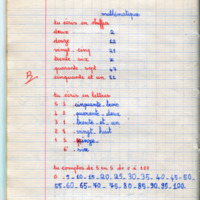 mathématique
tu écris en chiffres
deux 2
douze 12
vingt-cinq 25
trente-six
quarante-sept 47
cinquante et un
B
tu écris en lettres
cinquante
quarante-deux
trente et un
vingt-huit
quinze
6 six
tu comptes de 5 en 5 de 0 à 100
0 . 5 . 10 . 15 . 20 . 25 . 30 . 35 . 40 . 45 . 50 .
55 . 60 . 65 . 70 . 75 . 80 . 85 . 90 . 95 . 100 .